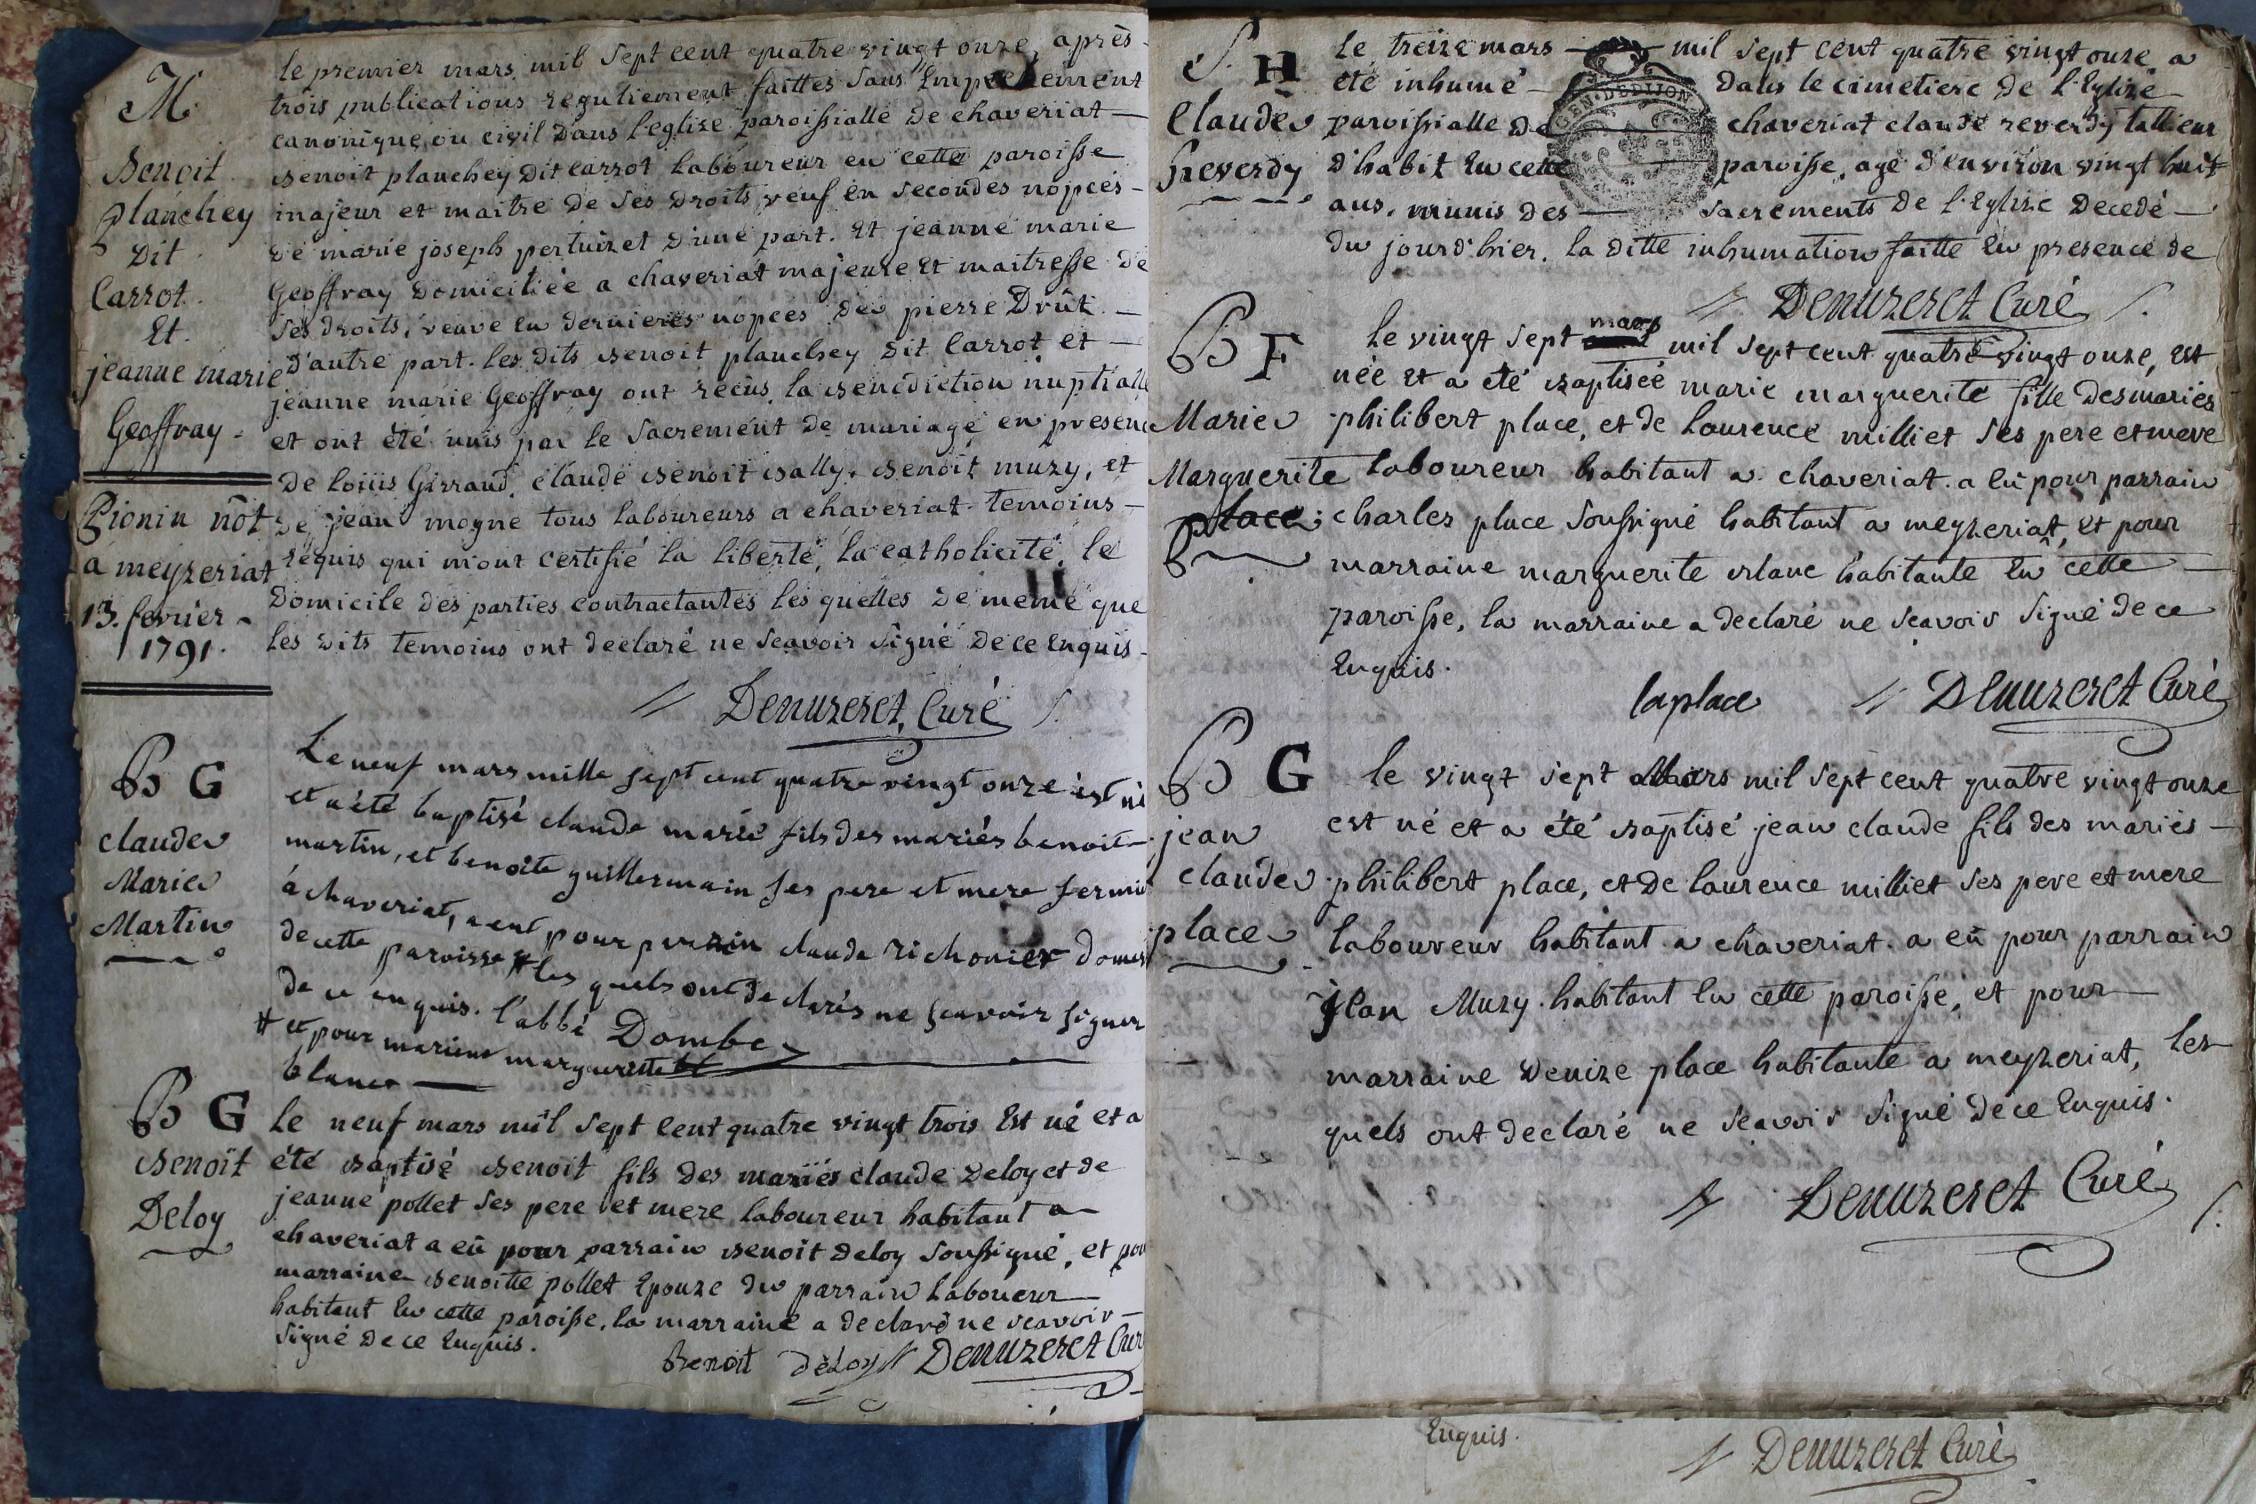 M
Benoit
planchey
Dit
Carrot.
Et.
jeanne marie
Geoffray.
le premier mars mil sept cent quatre vingt onze, après
trois publications regulierement faittes sans Empechement
canonique ou civil dans l'eglise paroissialle de chaveriat
Benoit planchey dit carrot laboureur en cette paroisse
majeur et maitre de ses droits veuf en secondes nopces
de marie joseph pertuizet d'une part. Et jeanne marie
Geoffray domiciliée a chaveriat majeure et maitresse de
ses droits, veuve en dernieres nopces de pierre Drût
d'autre part. les dits Benoit planchey dit Carrot et
jeanne marie Geoffray ont reçus la Benediction nuptialle
et ont été unis par le sacrement de mariage en presence
de loüis Girraud, claude Benoit Bally, Benoit muzy, et
de jean moyne tous laboureurs a chaveriat temoins
requis qui m'ont certifié la liberté, la catholicité, le
Domicile des parties contractantes les quelles de meme que
les dits temoins ont declaré ne sçavoir signé de ce Enquis
Denuzeret, Curé
Pionin nôt
a meyzeriat
13. fevrier
1791.
B G
claude
Marie
Martin
Le neuf mars mille sept cent quatre vingt onze est né
et a été baptisé claude marie fils des mariés benoit
martin, et benoite guillermain ses pere et mere fermier
à chaveriat, a eut pour parrain claude richonier domes
de cette paroisse # les quels ont declarés ne sçavoir signer
de ce enquis. l'abbé Dombey
# et pour mariene margueritte bl
blanc
B G
Benoît
Deloy
Le neuf mars mil sept cent quatre vingt trois Est né et a
été Baptisé Benoit fils des mariés claude Deloy et de
jeanne pollet ses pere et mere laboureur habitant a
chaveriat a eû pour parrain Benoit deloy soussigné, et pour
marraine Benoitte pollet Epouze du parrain laboueur
habitant En cette paroisse, la marraine a declaré ne scavoir
signé de ce Enquis.
Benoit deLoy Denuzeret Curé
S. H
Claude
Reverdy
Le treize mars mil sept cent quatre vingt onze a
été inhumé dans le cimetiere de l'Eglize
paroissialle de chaveriat claude reverdy tallieur
d'habit En cette paroisse, agé d'environ vingt huit
ans, munis des sacrements de l'Eglize decedé
du jourd'hier. la ditte inhumation faitte En presence de
GEN. DE DIJON
Denuzeret Curé
B F
Marie
Marguerite
place
mars
le vingt sept mil sept cent quatre vingt onze, Est
née Et a été Baptiseé marie marguerite fille des mariés
philibert place, et de Laurence milliet ses pere et mere
laboureur habitant a chaveriat. a eû pour parrain
charles place soussigné habitant a meyzeriat, Et pour
marraine marguerite Blanc habitante En cette
paroisse, la marraine a declaré ne scavoir signé de ce
Enquis.
laplace Denuzeret Curé
B G
jean
claude
place
le vingt sept Mars mil sept cent quatre vingt onze
est né et a été Baptisé jean claude fils des mariés
philibert place, et De laurence milliet ses pere et mere
laboureur habitant a chaveriat. a eû pour parrain
jean Muzy habitant En cette paroisse, et pour
marraine Denize place habitante a meyzeriat, les
quels ont declaré ne scavoir signé de ce Enquis.
Denuzeret Curé
Enquis.
Denuzeret Curé